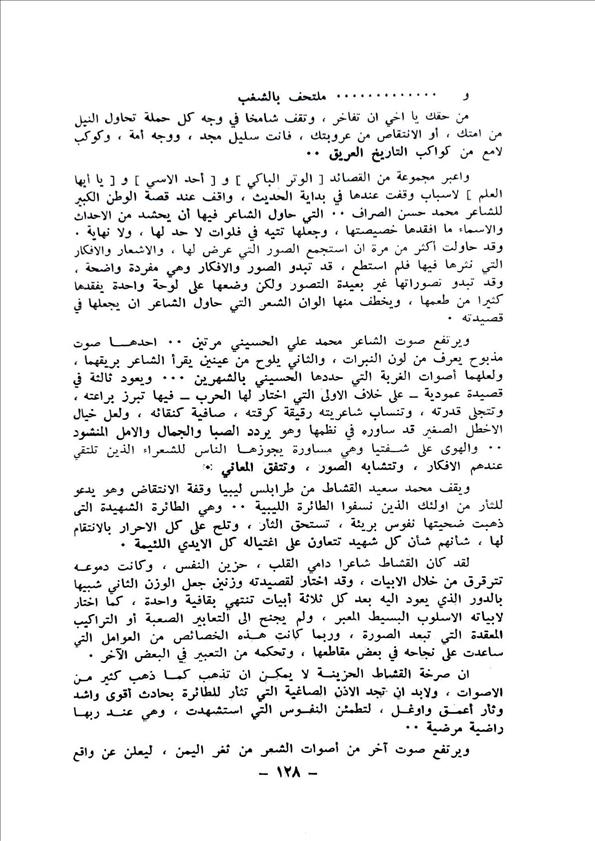 و ............. ملتحف بالشغب
من حقك يا اخي ان تفاخر ، وتقف شامخا في وجه كل حملة تحاول النيل
من امتك ، أو الانتقاص من عروبتك ، فانت سليل مجد ، ووجه أمة ، وكوكب
لامع من كواكب التاريخ العريق ..
واعبر مجموعة من القصائد [ الوتر الباكي ] و [ أحد الاسي ] و [ يا أيها
العلم ] لاسباب وقفت عندها في بداية الحديث ، واقف عند قصة الوطن الكبير
للشاعر محمد حسن الصراف .. التي حاول الشاعر فيها أن يحشد من الاحداث
والاسماء ما افقدها خصيصتها ، وجعلها تتيه في فلوات لا حد لها ، ولا نهاية .
وقد حاولت أكثر من مرة ان استجمع الصور التي عرض لها ، والاشعار والافكار
التي نثرها فيها فلم استطع ، قد تبدو الصور والافكار وهي مفردة واضحة ،
وقد تبدو تصوراتها غير بعيدة التصور ولكن وضعها على لوحة واحدة يفقدها
كثيرا من طعمها ، ويخطف منها الوان الشعر التي حاول الشاعر ان يجعلها في
قصيدته .
ويرتفع صوت الشاعر محمد علي الحسيني مرتين .. احدهما صوت
مذبوح يعرف من لون النبرات ، والثاني يلوح من عينين يقرأ الشاعر بريقهما ،
ولعلهما أصوات الغربة التي حددها الحسيني بالشهرين ... ويعود ثالثة في
قصيدة عمودية ــ على خلاف الاولى التي اختار لها الحرب ــ فيها تبرز براعته ،
وتتجلى قدرته ، وتنساب شاعريته رقيقة كرقته ، صافية كنقائه ، ولعل خيال
الاخطل الصغير قد ساوره في نظمها وهو يردد الصبا والجمال والامل المنشود
.. والهوى على شفتيها وهي مساورة يجوزها الناس للشعراء الذين تلتقي
عندهم الافكار ، وتتشابه الصور ، وتتفق المعاني .
ويقف محمد سعيد القشاط من طرابلس ليبيا وقفة الانتقاض وهو يدعو
للثأر من اولئك الذين نسفوا الطائرة الليبية .. وهي الطائرة الشهيدة التى
ذهبت ضحيتها نفوس بريئة ، تستحق الثأر ، وتلح على كل الاحرار بالانتقام
لها ، شأنهم شأن كل شهيد تتعاون على اغتياله كل الايدي اللئيمة .
لقد كان القشاط شاعرا دامي القلب ، حزين النفس ، وكانت دموعه
تترقرق من خلال الابيات ، وقد اختار لقصيدته وزنين جعل الوزن الثاني شبيها
بالدور الذي يعود اليه بعد كل ثلاثة أبيات تنتهي بقافية واحدة ، كما اختار
لابياته الاسلوب البسيط المعبر ، ولم يجنح الى التعابير الصعبة أو التراكيب
المعقدة التي تبعد الصورة ، وربما كانت هذه الخصائص من العوامل التي
ساعدت على نجاحه في بعض مقاطعها ، وتحكمه من التعبير في البعض الآخر .
ان صرخة القشاط الحزينة لا يمكن ان تذهب كما ذهب كثير من
الاصوات ، ولابد ان تجد الاذن الصاغية التي تثار للطائرة بحادث أقوى واشد
وثأر أعمق واوغل ، لتطمئن النفوس التي استشهدت ، وهي عند ربها
راضية مرضية ..
ويرتفع صوت آخر من أصوات الشعر من ثغر اليمن ، ليعلن عن واقع
– ١٢٨ –